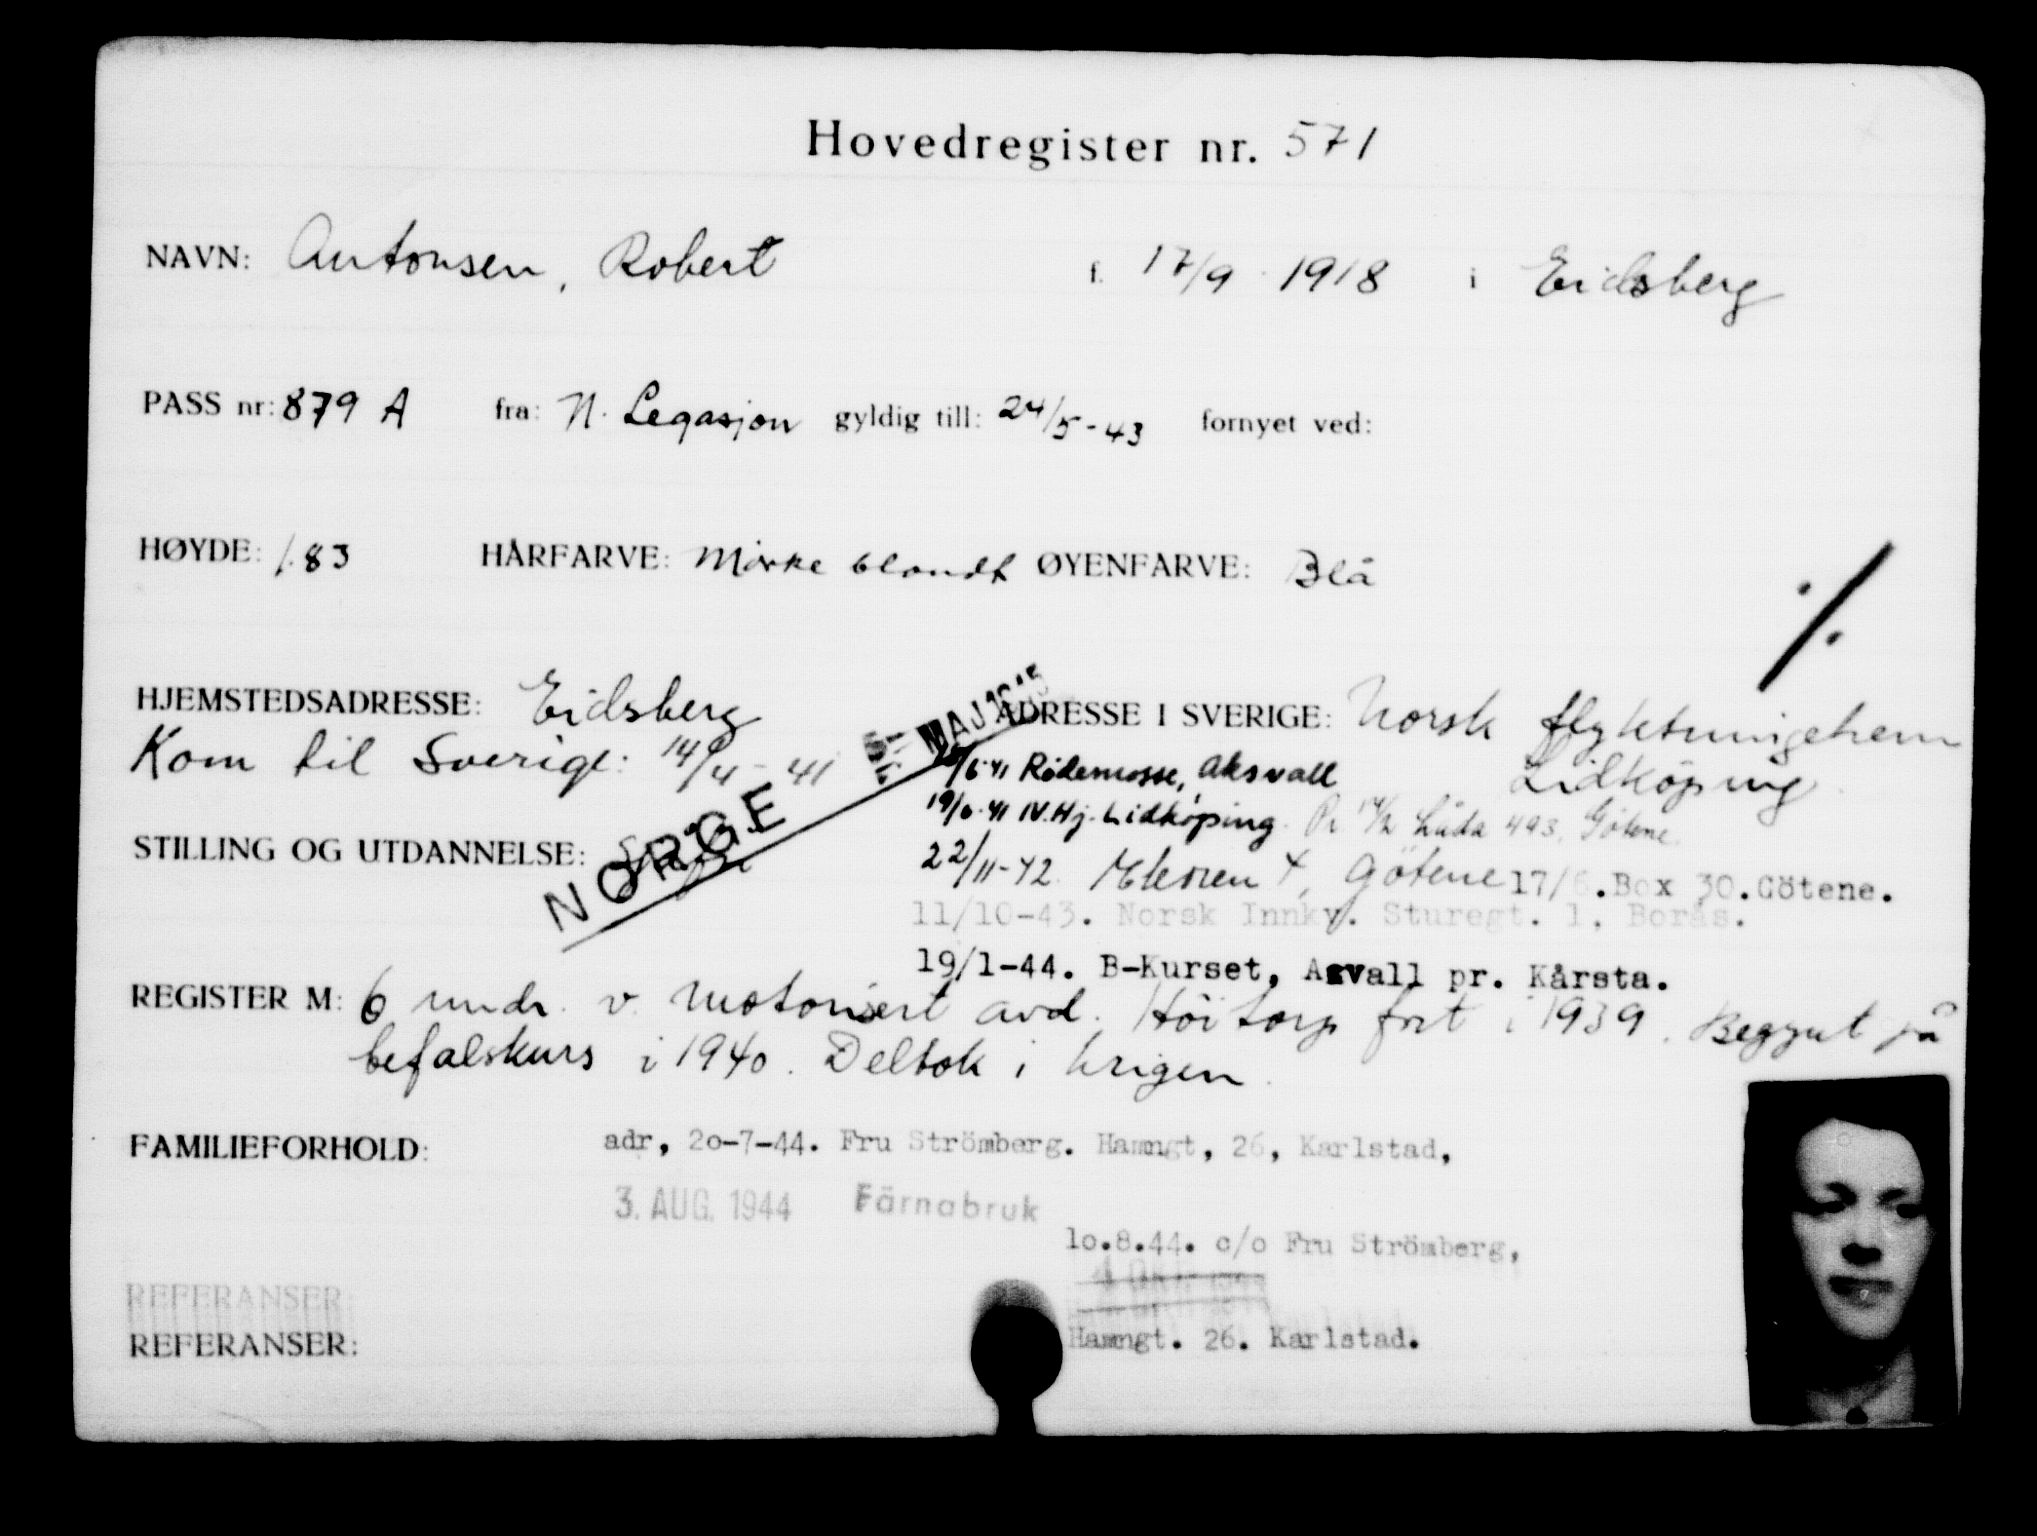 Hovedregister nr. 571
NAVN: Antonsen, Robert f. 17/9 1918 i Eidsberg
PASS nr: 879 A fra: N. Legasjon gyldig till: 24/5-43 fornyet ved:
HØYDE: 1.83 HÅRFARVE: Mörke blondt ØYENFARVE: Blå
HJEMSTEDSADRESSE: Eidsberg ADRESSE I SVERIGE: Norsk flyktningehem
Lidköping
Kom til Sverige: 14/4-41
MAJ 1945
/6-41 Rödemosse, Aksvall
19/6-41 N.Hj. Lidköping. Låda 493, Götene.
STILLING OG UTDANNELSE:
NORGE
22/11-42 4, Götene 17/6.Box 30.Götene.
11/10-43. Norsk Innkv. Sturegt. 1. Borås.
19/1-44. B-Kurset, Axvall pr. Kårsta.
REGISTER M: 6 mndr. v. motorisert avd. Höitorp fort i 1939. Beggynt på
befalskurs i 1940. Deltok i krigen.
FAMILIEFORHOLD: adr, 2o-7-44. Fru Strömberg. Hamngt, 26, Karlstad,
3. AUG. 1944 Färnabruk
lo.8.44. c/o Fru Strömberg,
REFERANSER
REFERANSER: Hamngt. 26. Karlstad.